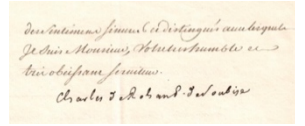 des sentimens sinceres et distingués avec lesquels
Je suis Monsieur, Votre tres humble et
tres obeissant serviteur.
Charles de Rohan P. de Soubise